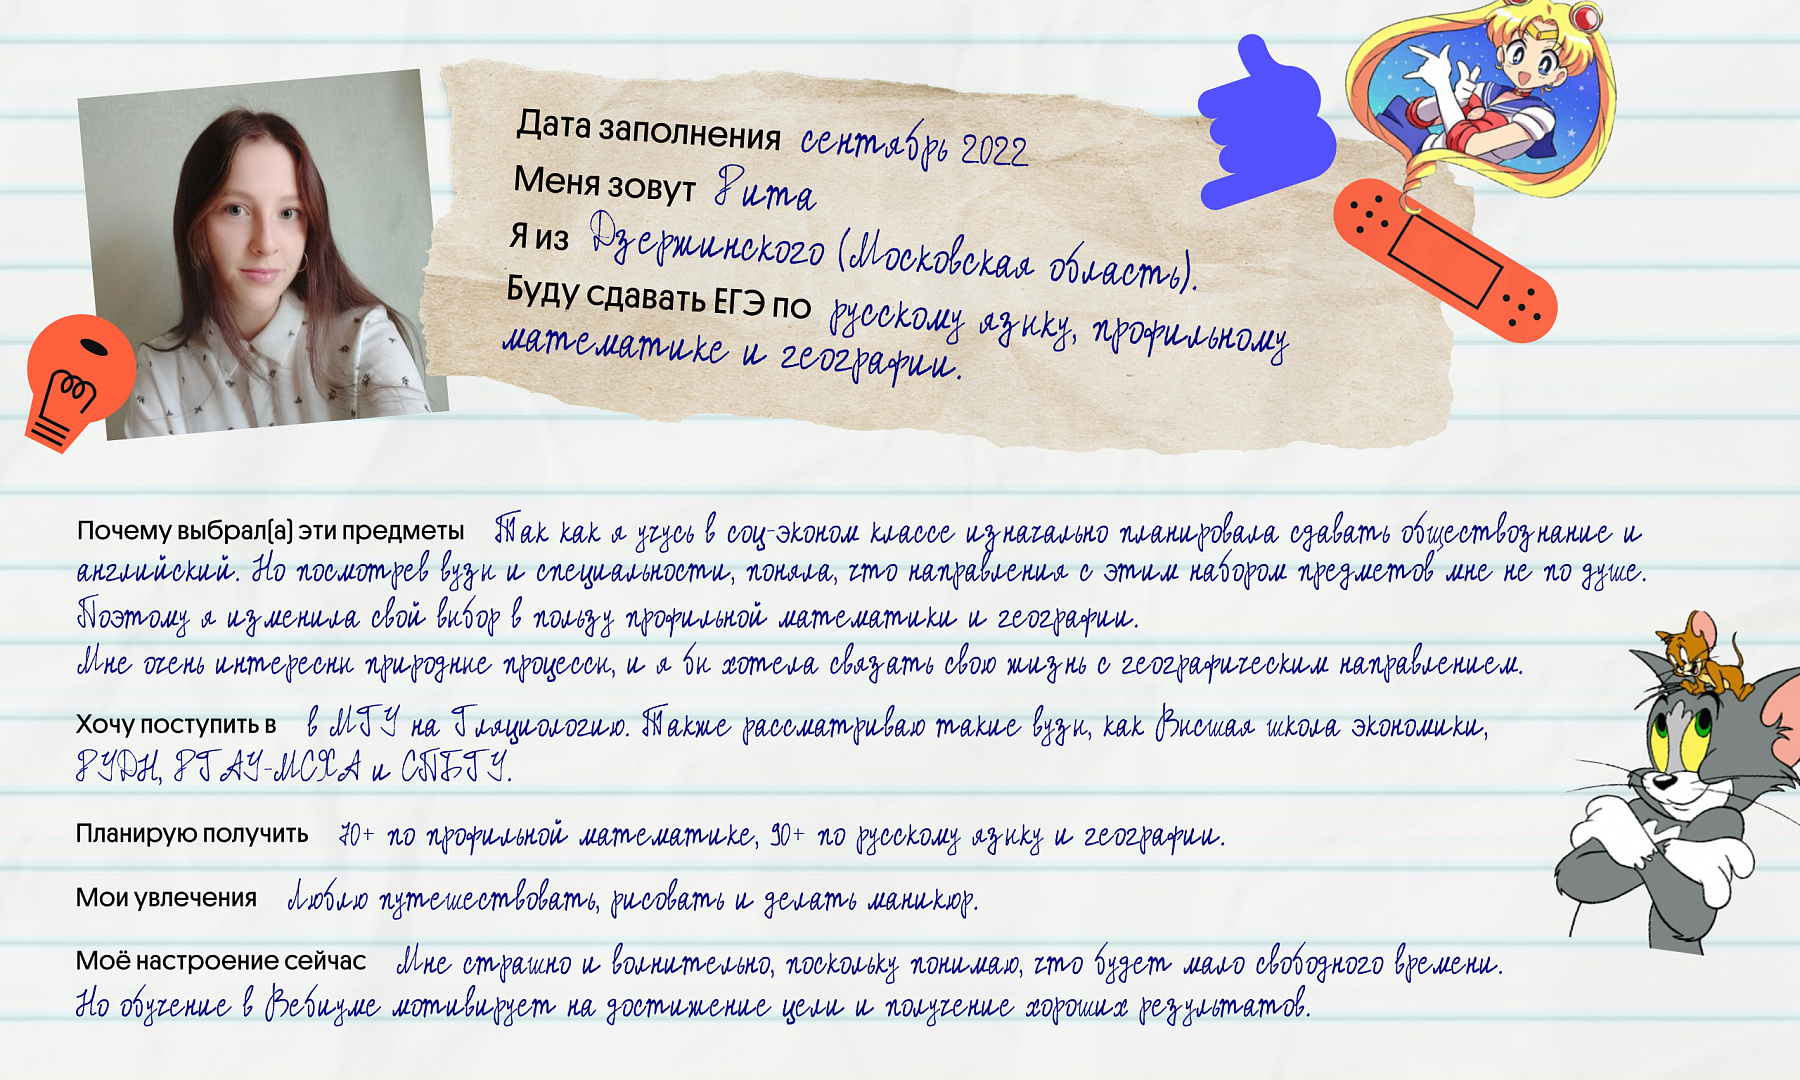 Дата заполнения сентябрь 2022
Меня зовут Рита
Я из Дзержинского (Московская область).
Буду сдавать ЕГЭ по русскому языку, профильному
математике и географии.
Почему выбрал(а) эти предметы Так как я учусь в соц-эконом классе изначально планировала сдавать обществознание и
английский. Но посмотрев вузы и специальности, поняла, что направления с этим набором предметов мне не по душе.
Поэтому я изменила свой выбор в пользу профильной математики и географии.
Мне очень интересны природные процессы, и я бы хотела связать свою жизнь с географическим направлением.
Хочу поступить в в МГУ на Гляциологию. Также рассматриваю такие вузы, как Высшая школа экономики,
РУДН, РГАУ-МСХА и СПБГУ.
Планирую получить 70+ по профильной математике, 90+ по русскому языку и географии.
Мои увлечения Люблю путешествовать, рисовать и делать маникюр.
Моё настроение сейчас Мне страшно и волнительно, поскольку понимаю, что будет мало свободного времени.
Но обучение в Вебиуме мотивирует на достижение цели и получение хороших результатов.